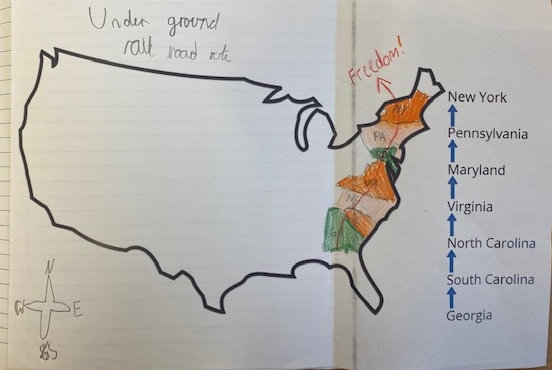 Under ground
rail road rute
Freedom!
New York
Pennsylvania
Maryland
Virginia
North Carolina
South Carolina
Georgia
PA
NC
N
W
E
S